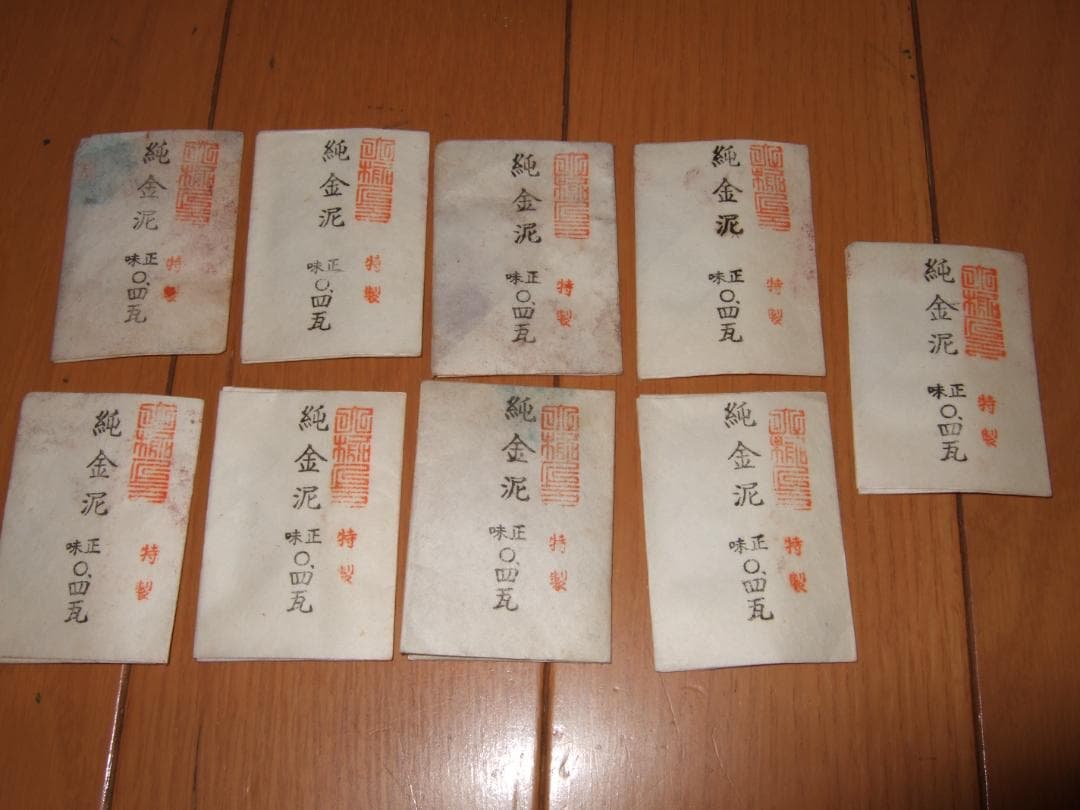 特製
純金泥 正味〇.四瓦
特製
純金泥 正味〇.四瓦
特製
純金泥 正味〇.四瓦
特製
純金泥 正味〇.四瓦
特製
純金泥 正味〇.四瓦
特製
純金泥 正味〇.四瓦
特製
純金泥 正味〇.四瓦
特製
純金泥 正味〇.四瓦
特製
純金泥 正味〇.四瓦